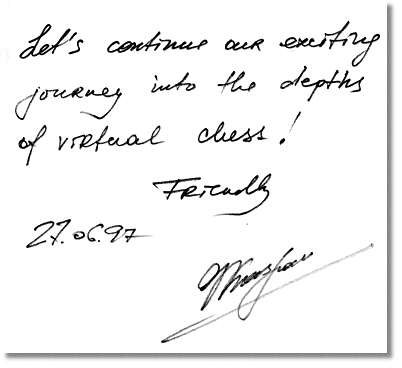 Let's continue our exciting
journey into the depths
of virtual chess!
Friendly
27.06.97